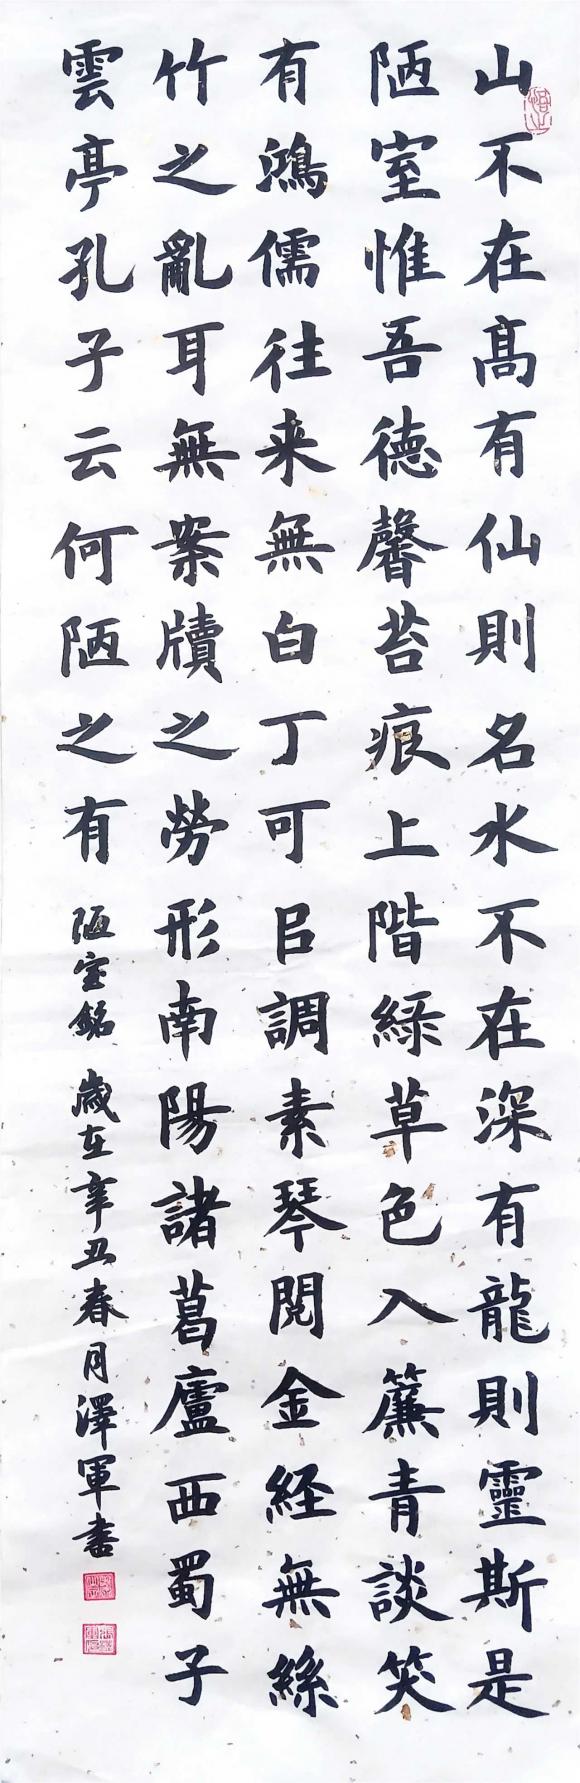 山不在高有仙則名水不在深有龍則靈斯是
陋室惟吾德馨苔痕上階綠草色入簾青談笑
有鴻儒往来無白丁可㠯調素琴閱金経無絲
竹之亂耳無案牘之勞形南陽諸葛廬西蜀子
雲亭孔子云何陋之有
陋室銘 歲在辛丑春月澤軍書